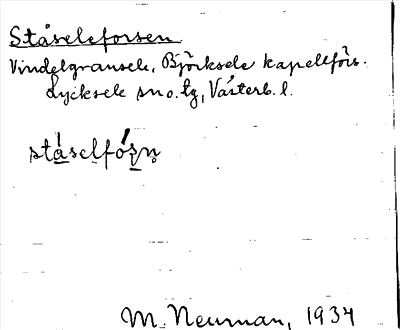 Ståseleforsen
Vindelgransele, Björksele kapellförs.
Lycksele sno. tg, Västerb. l.
stáselfórsn
M. Neuman, 1934